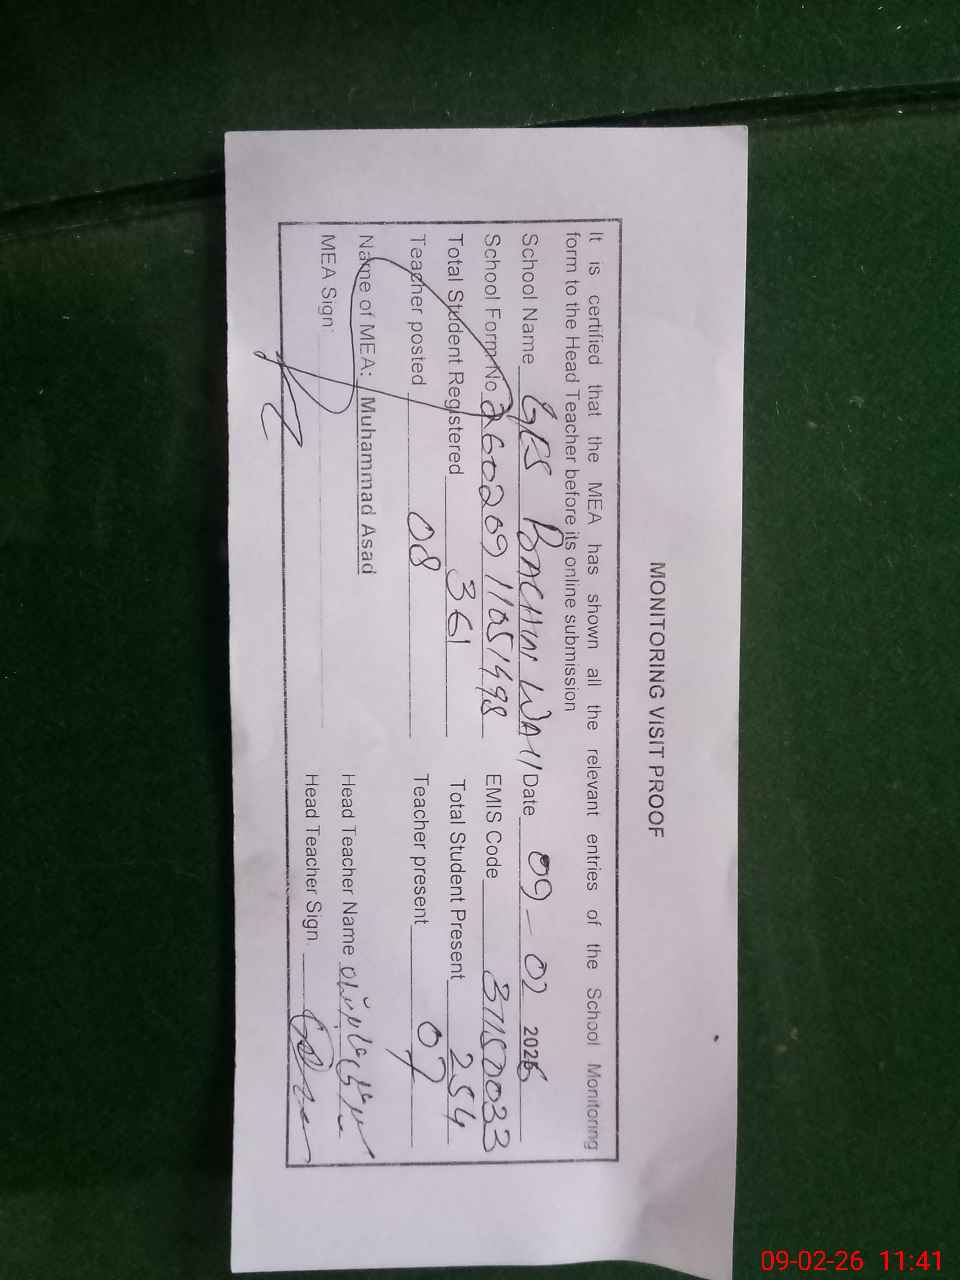 MONITORING VISIT PROOF
It is certified that the MEA has shown all the relevant entries of the School Monitoring
form to the Head Teacher before its online submission
School Name GES Date 09-02 2026
School Form No 26020911051498 EMIS Code 37150033
Total Student Registered 361 Total Student Present 254
Teacher posted 08 Teacher present 07
Name of MEA: Muhammad Asad Head Teacher Name
MEA Sign: Head Teacher Sign.
09-02-26 11:41